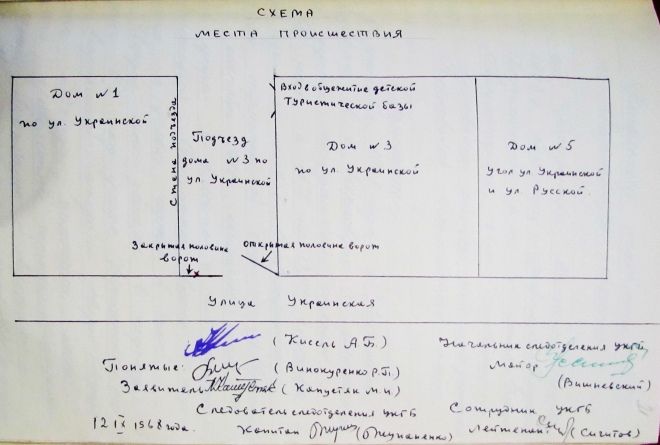 СХЕМА
МЕСТА ПРОИСШЕСТВИЯ
Дом №1
по ул. Украинской
Стена подъезда
Подъезд
дома №3 по
ул. Украинской
Вход в общежитие детской
Туристической базы
Дом №3
по ул. Украинской
Дом №5
Угол ул. Украинской
и ул. Русской
Закрытая половина
ворот
Открытая половина ворот
Улица Украинская
(Кисель А.Б.)
Понятые: (Винокуренко Р.П.)
Заявитель (Капустяк М.И.)
Следователь следотделения УКГБ
12 IX 1968 года. Капитан
Начальник следотделения УКГБ
Майор
(Вишневский)
Сотрудник УКГБ
Лейтенант (Сигитов)